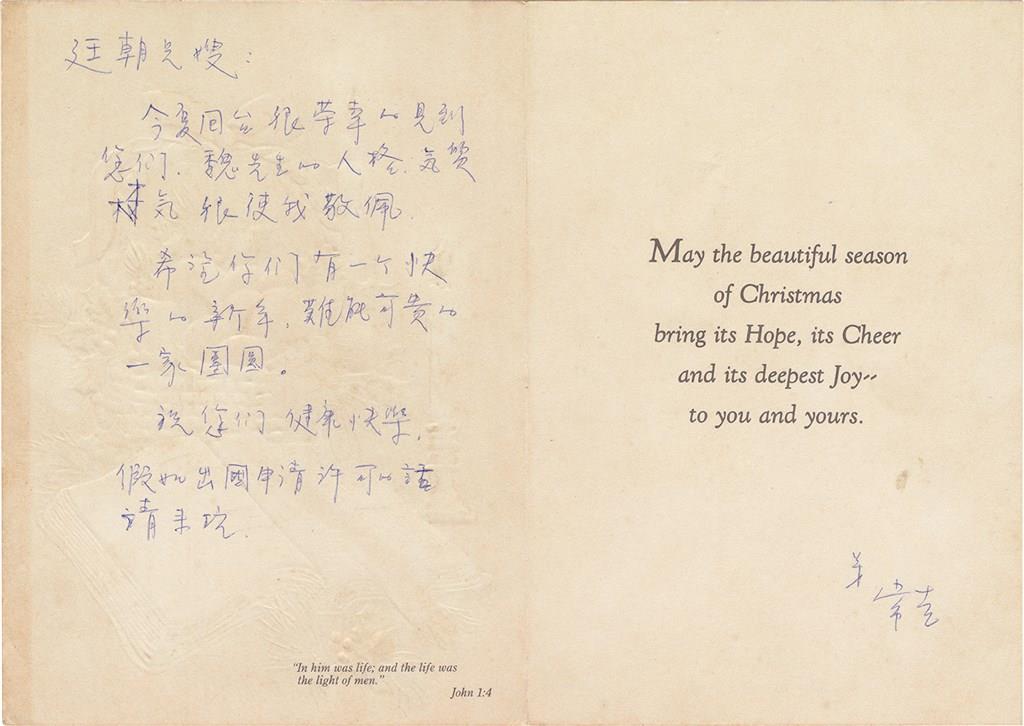 廷朝兄嫂:
今夏回台很荣幸的見到
您们.魏先生的人格.気質
才気很使我敬佩.
希望你们有一个快
樂的新年,難能可贵的
一家團圓。
祝您们健康快樂.
假如出國申请许可的話
请来玩.
"In him was life; and the life was
the light of men."
John 1:4
May the beautiful season
of Christmas
bring its Hope, its Cheer
and its deepest Joy--
to you and yours.
弟